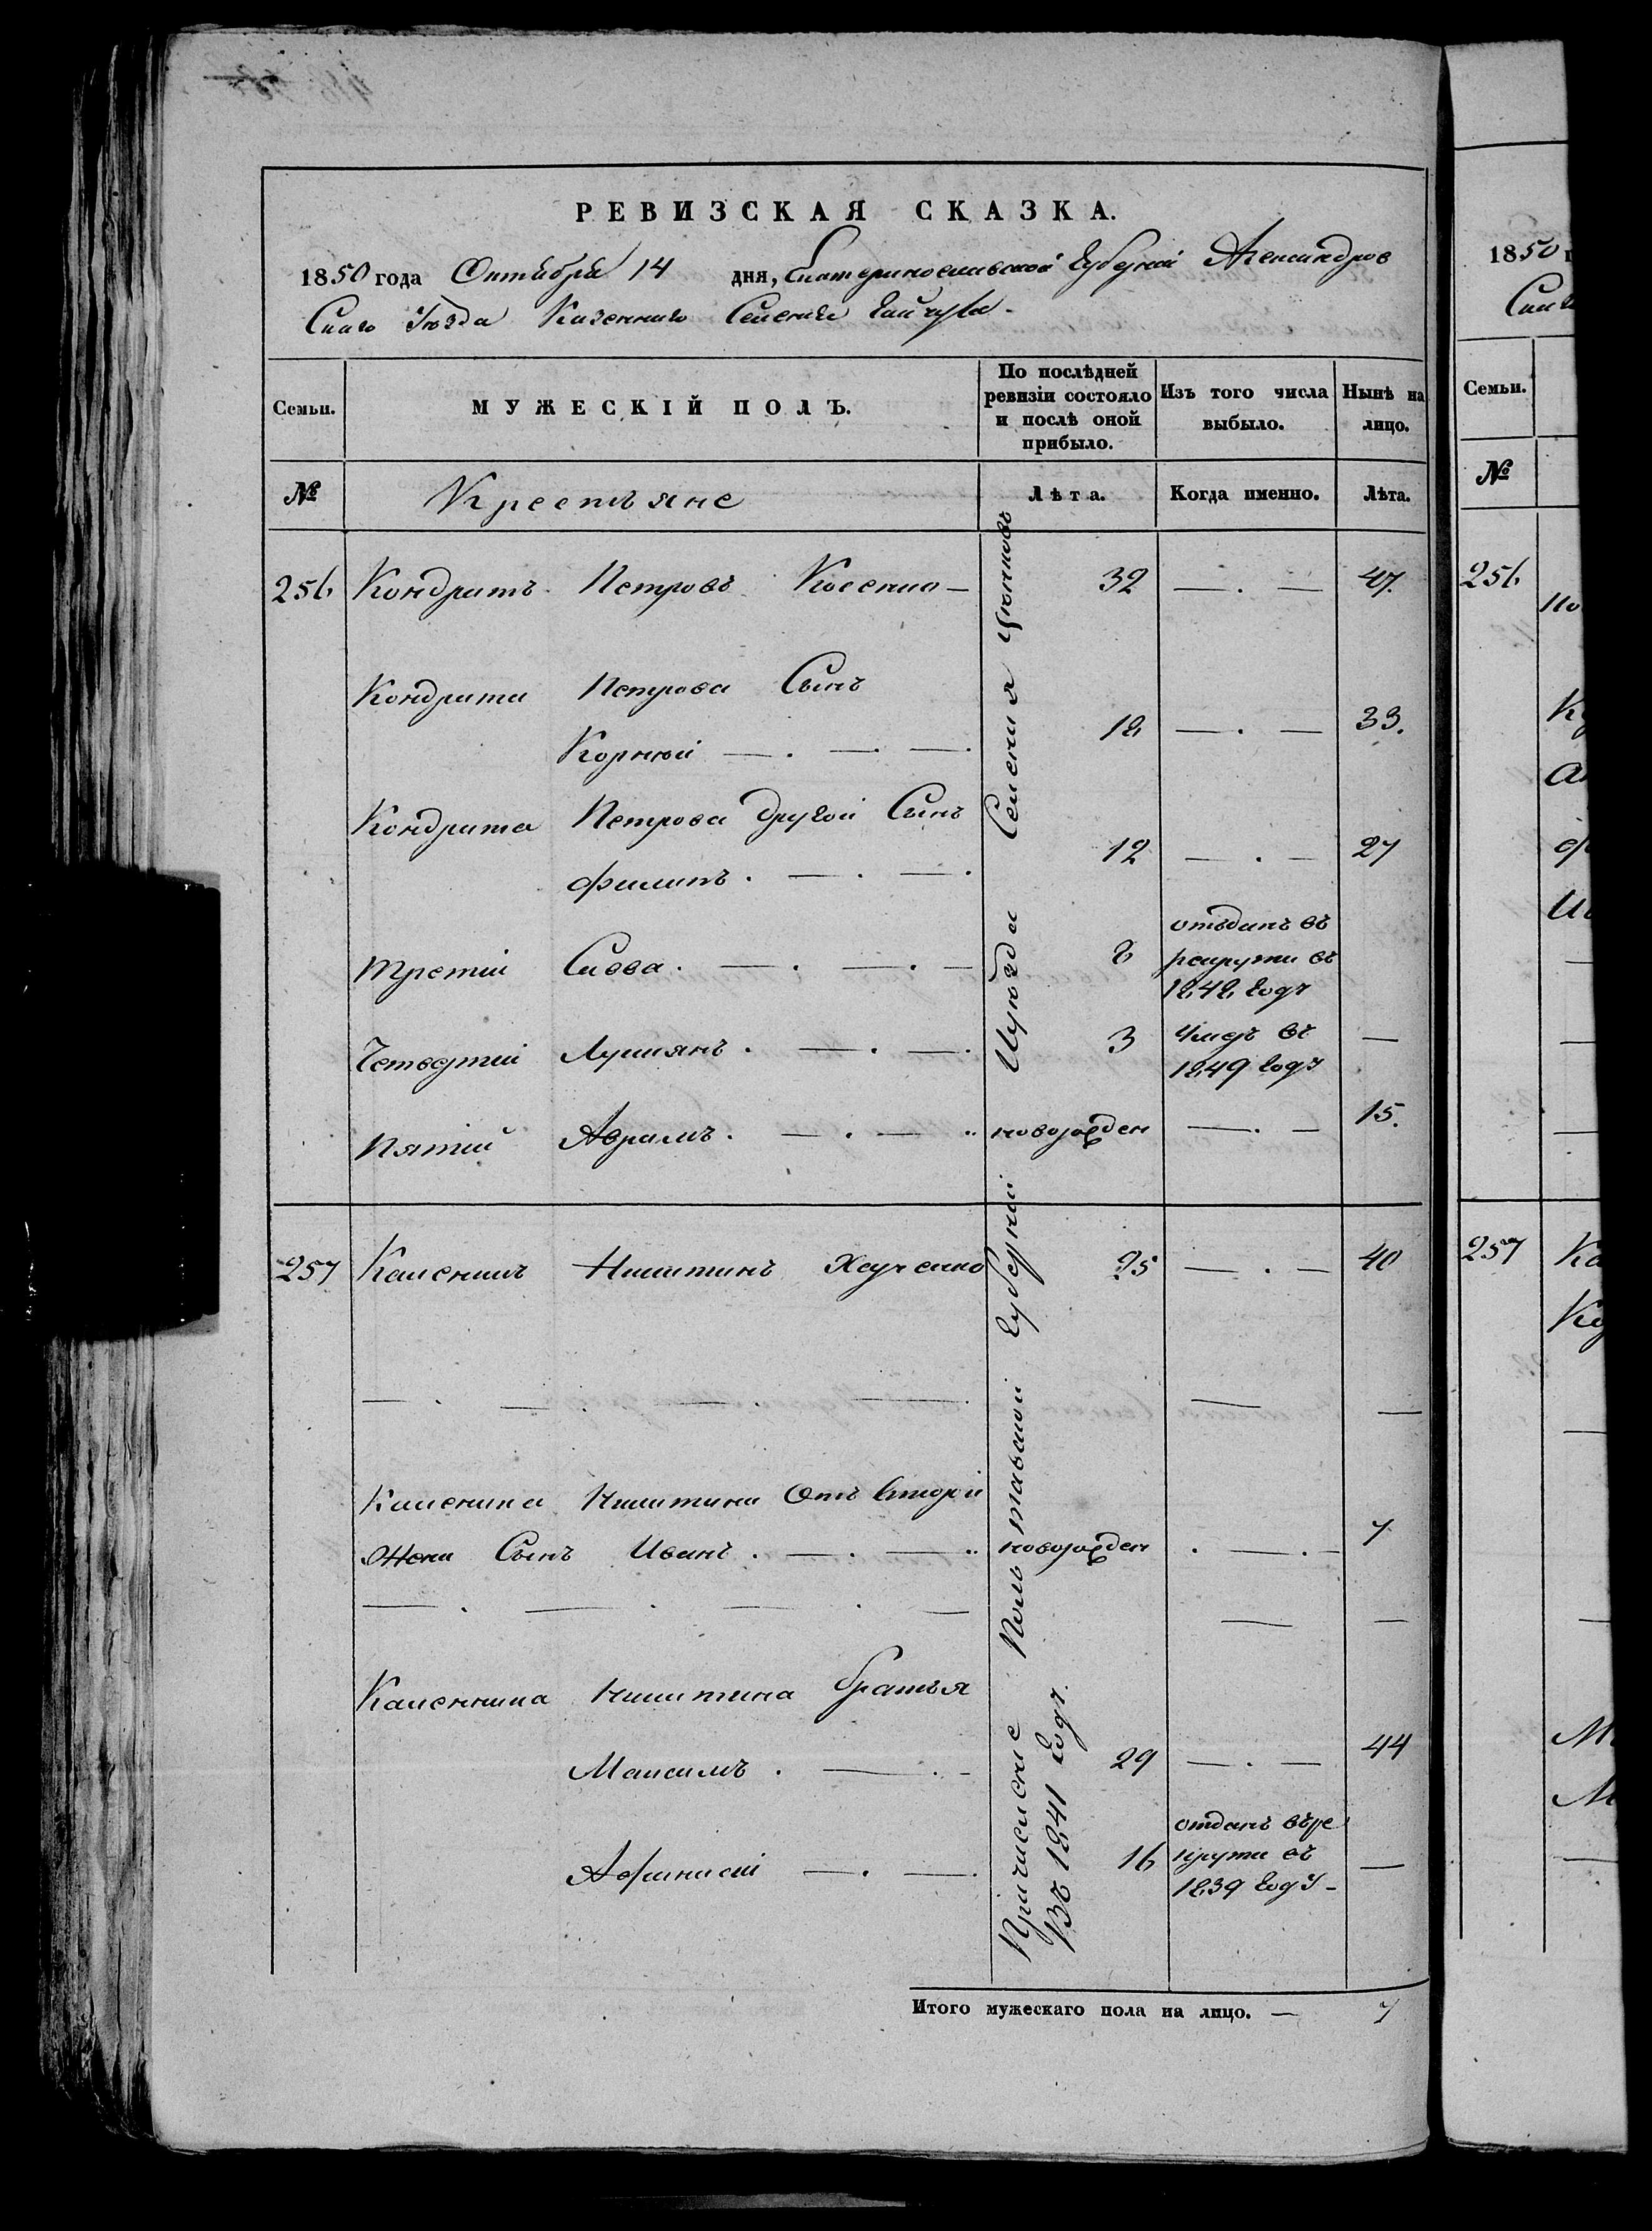 РЕВИЗСКАЯ СКАЗКА.
1850 года Октября 14 дня, Екатеринославской Губернии Александров
Скаго Уезда Казеннаго Селения Гайчула
Семьи.
МУЖЕСКІЙ ПОЛЪ.
По послѣдней ревизіи состояло и послѣ оной прибыло.
Изъ того числа выбыло.
Нынѣ на лицо.
№
Крестьяне
Лѣта.
Когда именно.
Лѣта.
256 Кондратъ Петровъ Косенко — 32 — . — 47.
Кондрата Петрова Сынъ
Корней — . — . — . 18 — . — 33.
Кондрата Петрова другой Сынъ
Филипъ . — . — . 12 — . — 27
третій Савва . — . — . — 8 отъданъ въ рекруты въ 1848 году
Четвертій Лукиянъ . — . — . 3 умеръ въ 1849 году —
Пятій Аврамъ . — . — .. новорожден — . — 15.
257 Каленикъ Никитинъ 25 — . — 40
Каленика Никитина Отъ второй
жени Сынъ Иванъ . — . — .. новорожден . — . — 7
Каленика Никитина братья
Максимъ . — . - 29 — . — 44
Афанасий — . — . 16 отданъ въ рекруты въ 1839 году - —
Причисление Полтавской Губернии Уезда Селения
Въ 1841 году.
Итого мужескаго пола на лицо. — 7
1850
Семьи.
№
256
257